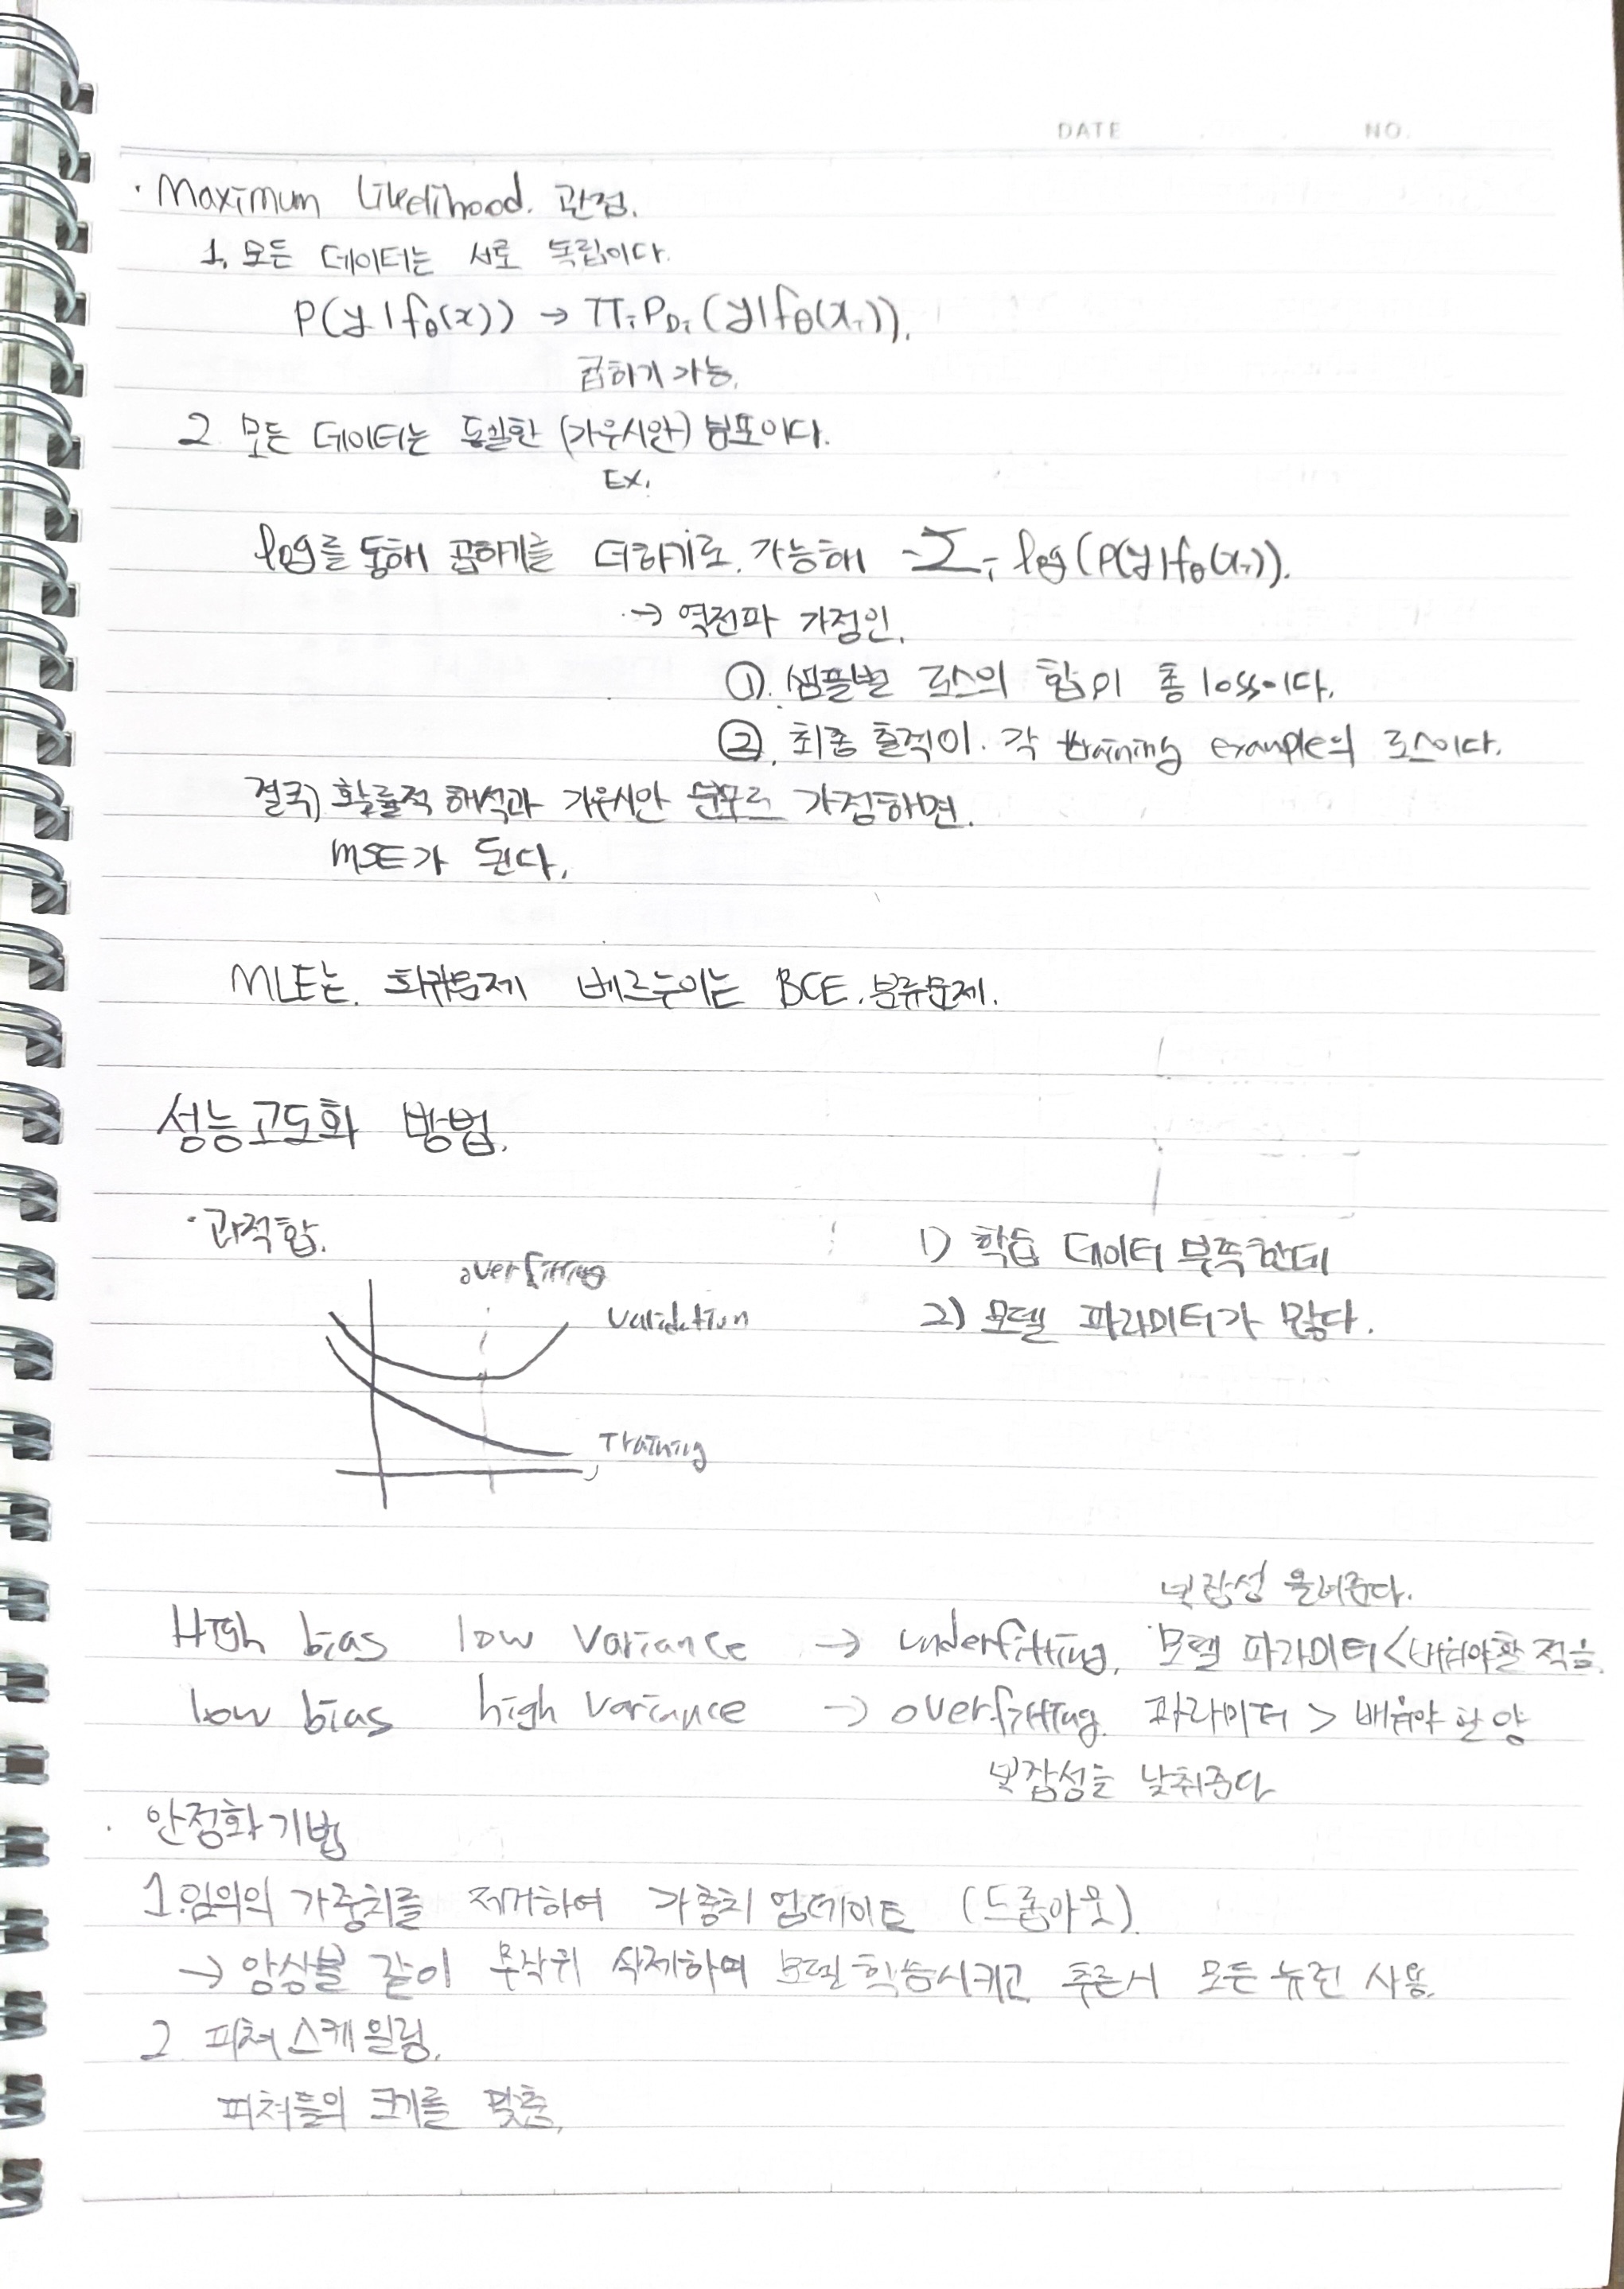 DATE NO.
· Maximum Likelihood. 관점.
1. 모든 데이터는 서로 독립이다.
P(y|fθ(x)) → Πi PDi (y|fθ(xi)).
곱하기 가능.
2. 모든 데이터는 동일한 (가우시안) 분포이다.
Ex.
log를 통해 곱하기를 더하기로. 가능해 -Σi log(P(y|fθ(xi)).
→ 역전파 가정인.
①. 샘플별 로스의 합이 총 loss이다.
②. 최종 출력이. 각 training example의 로스이다.
결국, 확률적 해석과 가우시안 분포로 가정하면.
MSE가 된다.
MLE는. 회귀문제 베르누이는 BCE. 분류문제.
성능고도화 방법.
· 과적합.
1) 학습 데이터 부족한데
2) 모델 파라미터가 많다.
overfitting
validation
Training
복잡성 올려준다.
High bias low variance → underfitting. 모델 파라미터 < 배워야할 적음.
low bias high variance → overfitting. 파라미터 > 배워야 한 양
복잡성을 낮춰준다
· 안정화기법
1. 임의의 가중치를 제거하여 가중치 업데이트 (드롭아웃).
→ 앙상블 같이 무작위 삭제하며 모델 학습시키고 추론시 모든 뉴런 사용.
2. 피쳐 스케일링.
피쳐들의 크기를 맞춤.